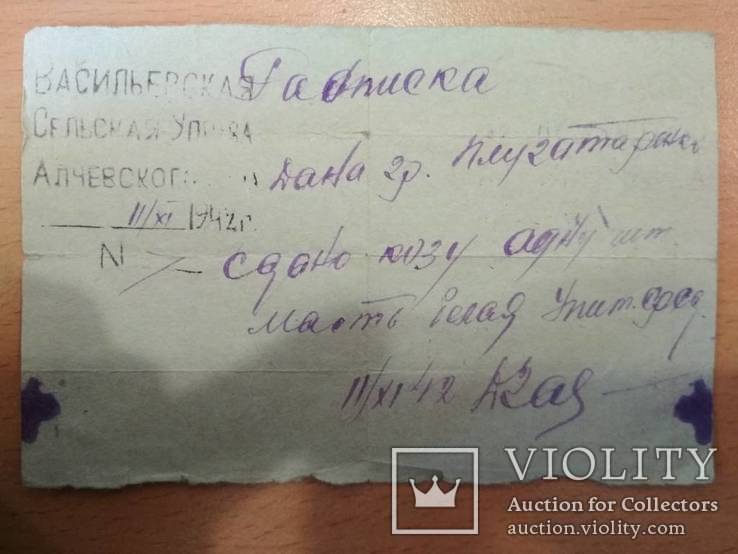 Расписка
ВАСИЛЬЕВСКАЯ
СЕЛЬСКАЯ УПРАВА
АЛЧЕВСКОГ
11/XI 1942 г.
N
Дана гр.
сдано козу одну шт.
масть белая упит.
11/XI 42
VIOLITY
Auction for Collectors
auction.violity.com